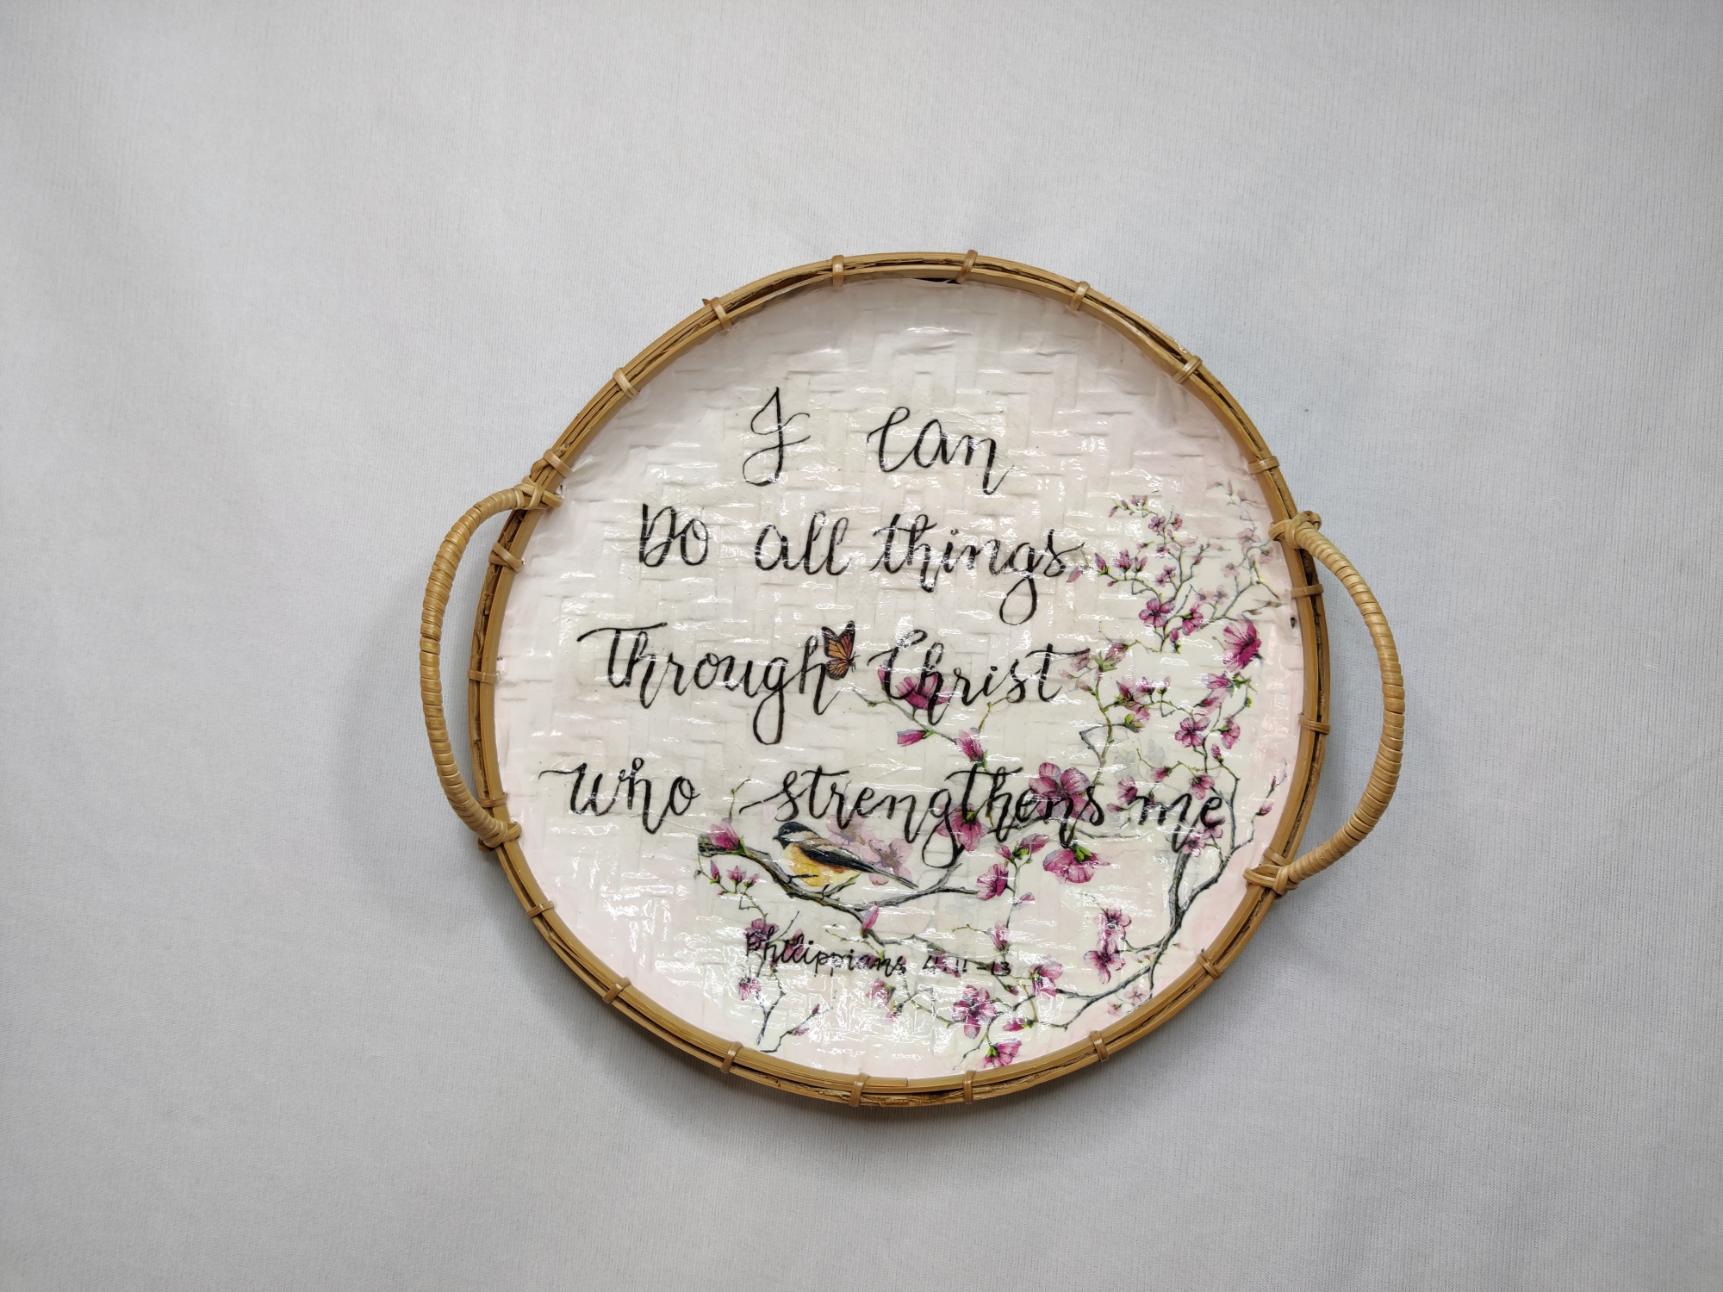 I can
Do all things
Through Christ
who strengthens me
Philippians 4:11-13